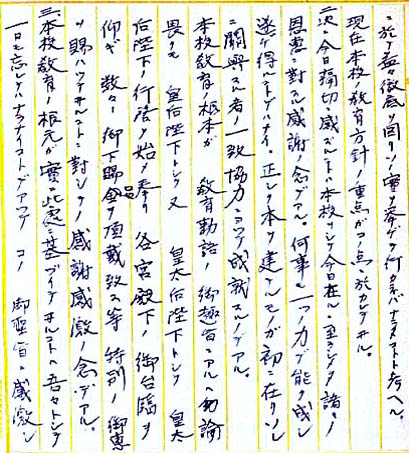 ニ於テ益々徹底ヲ図リソノ実ヲ挙ゲテ行カネバナラヌト考ヘル。
現在本校ノ教育方針ノ重点ガコノ点ニ於カレテヰル。
二、次ニ今日痛切ニ感ズルコトハ本校ヲシテ今日在ルニ至ラシメタ諸々ノ
恩恵ニ対スル感謝ノ念デアル。何事モ一ツノ力デ能ク成シ
遂ゲ得ルモノデハナイ。正シク本ヲ建テルモノガ初ニ在リソレ
ニ関与スル者ノ一致協力ニヨツテ成就スルノデアル。
本校教育ノ根本ガ 教育勅語ノ御趣旨ニアルハ勿論
畏クモ 皇后陛下トシテ又 皇太后陛下トシテ 皇太
后陛下ノ行啓ヲ始メ奉リ 各宮殿下ノ御台臨ヲ
仰ギ 数々ノ御下賜金品ヲ頂戴致ス等 特別ノ御恵
ヲ賜ハツテヰルコトニ対シテノ感謝感激ノ念デアル。
三、本校教育ノ根元ガ実ニ此処ニ基ヅイテヰルコトハ吾々トシテ
一日モ忘レテハナラナイコトデアツテ コノ 御聖旨ニ感激シ